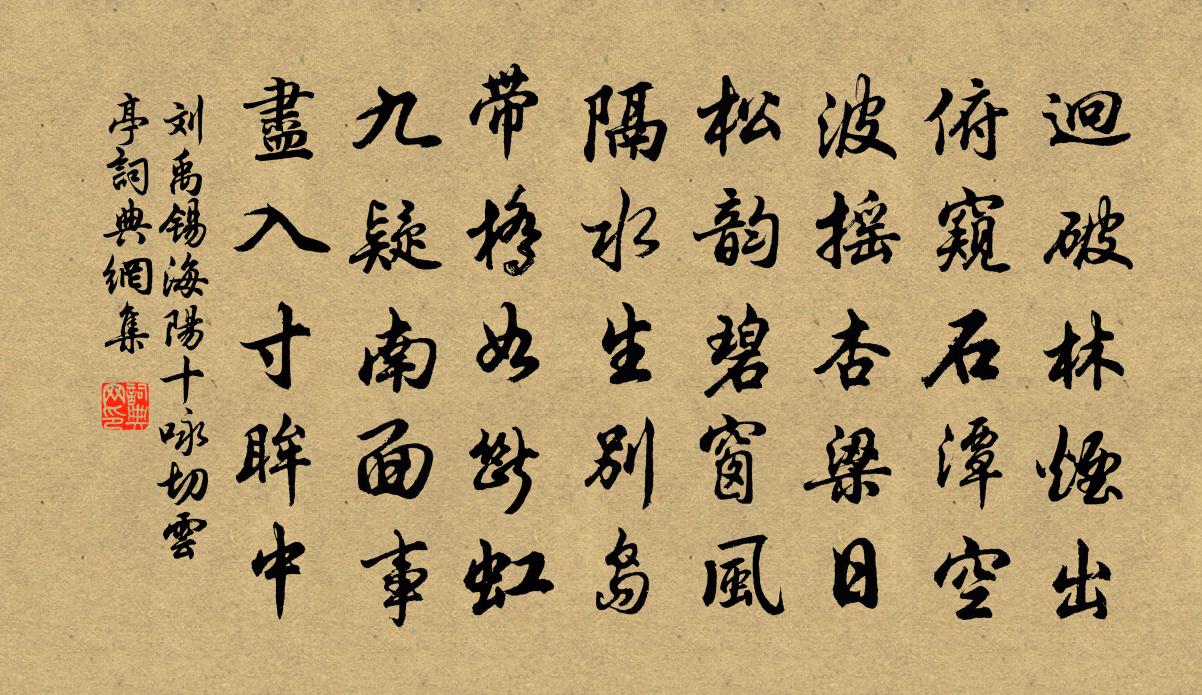 迥破林煙出
俯窺石潭空
波摇杏梁日
松韵碧窗風
隔水生别島
带橋如斷虹
九疑南面事
盡入寸眸中
刘禹锡海陽十咏切雲
亭詞典網集
詞典
网印